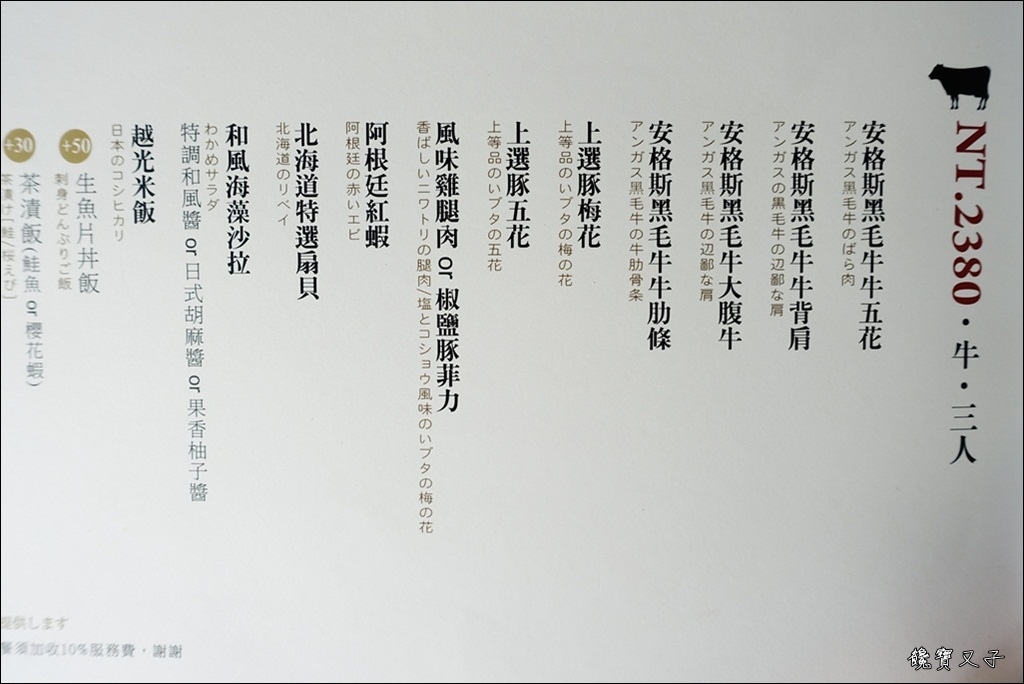 NT.2380・牛・三人
安格斯黑毛牛牛五花
アンガス黒毛牛のばら肉
安格斯黑毛牛牛背肩
アンガスの黒毛牛の辺鄙な肩
安格斯黑毛牛大腹牛
アンガス黒毛牛の辺鄙な肩
安格斯黑毛牛牛肋條
アンガス黒毛牛の牛肋骨条
上選豚梅花
上等品のいブタの梅の花
上選豚五花
上等品のいブタの五花
風味雞腿肉 or 椒鹽豚菲力
香ばしいニワトリの腿肉/塩とコショウ風味のいブタの梅の花
阿根廷紅蝦
阿根廷の赤いエビ
北海道特選扇貝
北海道のリベイ
和風海藻沙拉
わかめサラダ
特調和風醬 or 日式胡麻醬 or 果香柚子醬
越光米飯
日本のコシヒカリ
+50 生魚片丼飯
刺身どんぶりご飯
+30 茶漬飯(鮭魚 or 櫻花蝦)
茶漬け(鮭/桜えび)
提供します
餐須加收10%服務費，謝謝
饞寶又子